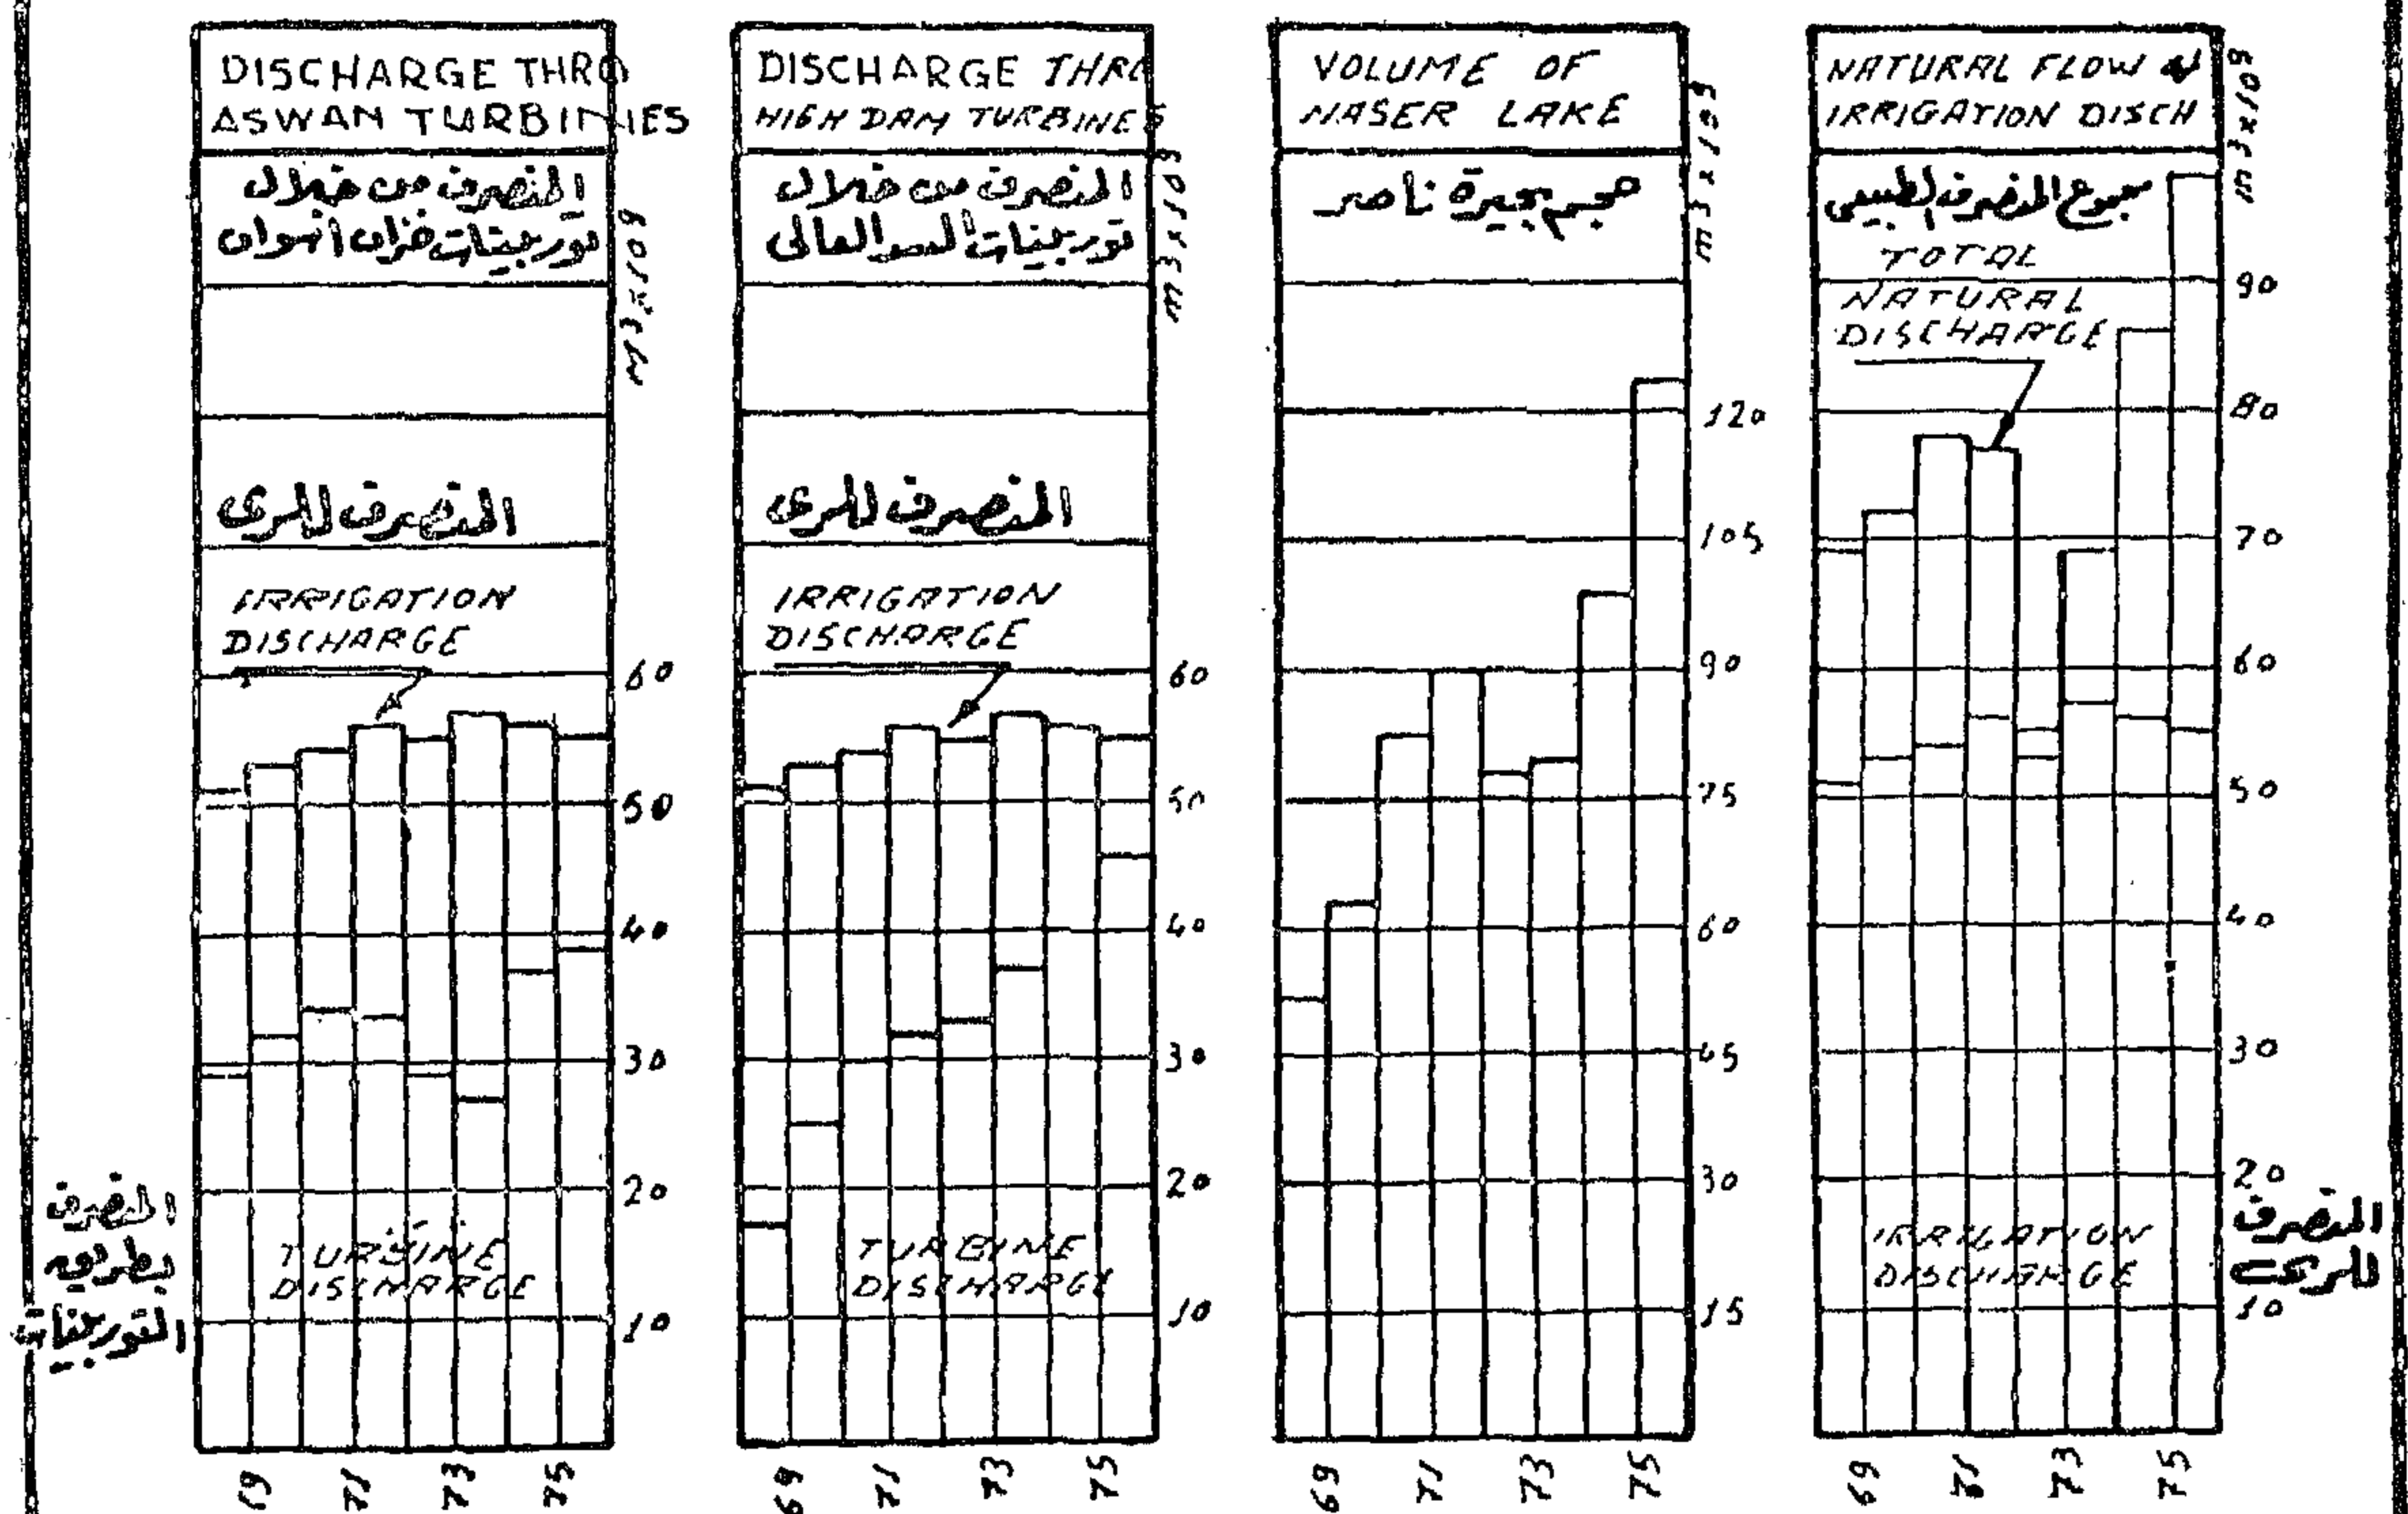 DISCHARGE THRO
ASWAN TURBINIES
المنصرف من خلال
توربينات خزان أسوان
M3x109
المنصرف للرى
IRRIGATION
DISCHARGE
60
50
40
30
20
10
TURBINE
DISCHARGE
المنصرف
بطريق
التوربينات
69
71
73
75
DISCHARGE THRO
HIGH DAM TURBINES
المنصرف من خلال
توربينات السد العالى
m3x109
المنصرف للرى
IRRIGATION
DISCHARGE
60
50
40
30
20
10
TURBINE
DISCHARGE
69
71
73
75
VOLUME OF
NASER LAKE
حجم بحيرة ناصر
m3x109
120
105
90
75
60
45
30
15
69
71
73
75
NATURAL FLOW &
IRRIGATION DISCH
مجموع المنصرف الطبيعى
m3x109
TOTAL
NATURAL
DISCHARGE
90
80
70
60
50
40
30
20
10
IRRIGATION
DISCHARGE
المنصرف
للرى
69
71
73
75